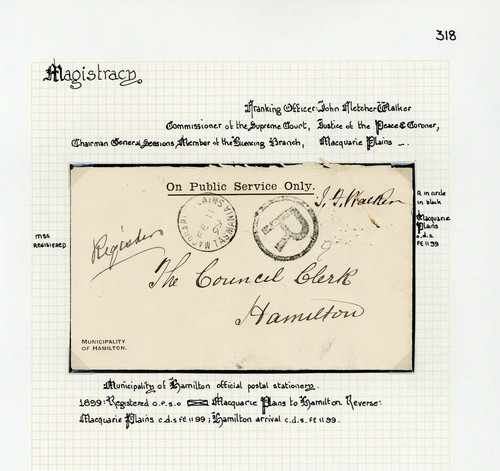 318
Magistracy
Franking Officer: John Fletcher Walker
Commissioner of the Supreme Court, Justice of the Peace & Coroner,
Chairman General Sessions, Member of the Licencing Branch, Macquarie Plains _.
On Public Service Only.
J. F. Walker
R in circle
in black
Macquarie
Plains
c.d.s.
FE 11 99
mss
REGISTERED
Registered
MACQUARIE PLAINS
TASMANIA
R
The Council Clerk
Hamilton
MUNICIPALITY
OF HAMILTON.
Municipality of Hamilton official postal stationery.
1899: Registered o.p.s.o Macquarie Plans to Hamilton Reverse:
Macquarie Plains c.d.s FE 11 99; Hamilton arrival c.d.s. FE 11 99.